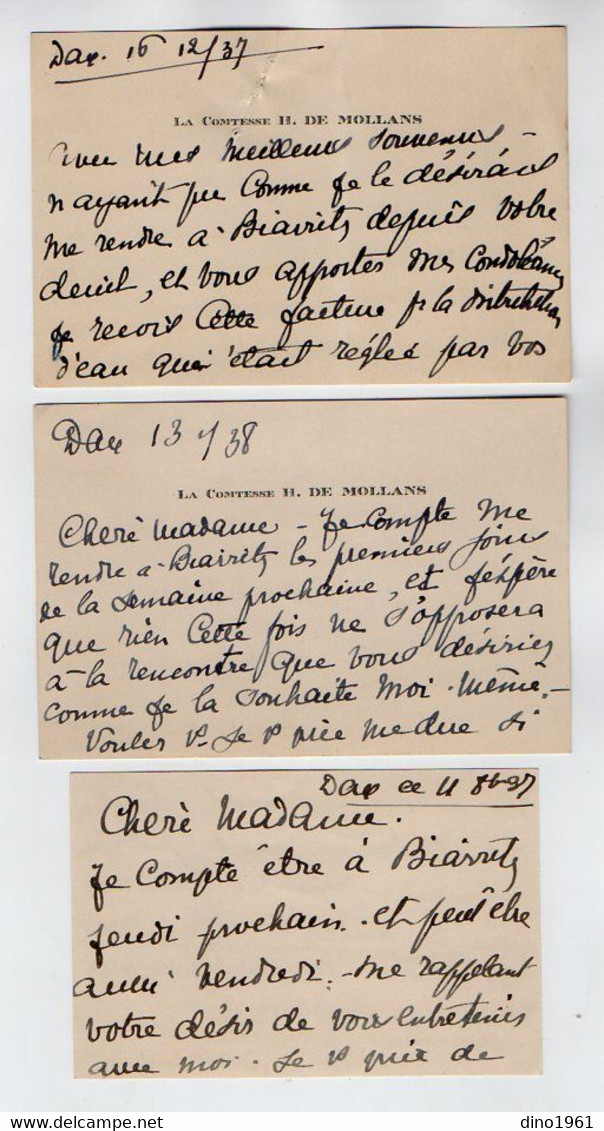 Dax. 16 12/37
LA COMTESSE H. DE MOLLANS
Avec mes meilleurs souvenirs -
n'ayant pu comme je le désirais
me rendre à Biarritz depuis votre
deuil, et vous apporter mes condoléances
je reçois cette facture pr la distribution
d'eau qui était réglée par vos
Dax 13 1/38
LA COMTESSE H. DE MOLLANS
Chère Madame - Je compte me
rendre à Biarritz les premiers jours
de la semaine prochaine, et j'espère
que rien cette fois ne s'opposera
à la rencontre que vous désiriez
comme je la souhaite moi-même.-
Voulez vs. Je vs prie me dire si
Dax ce 11 8bre 37
Chère Madame.
Je compte être à Biarritz
jeudi prochain. et peut être
aussi vendredi. - me rappelant
votre désir de vous entretenir
avec moi. Je vs prie de
dino1961